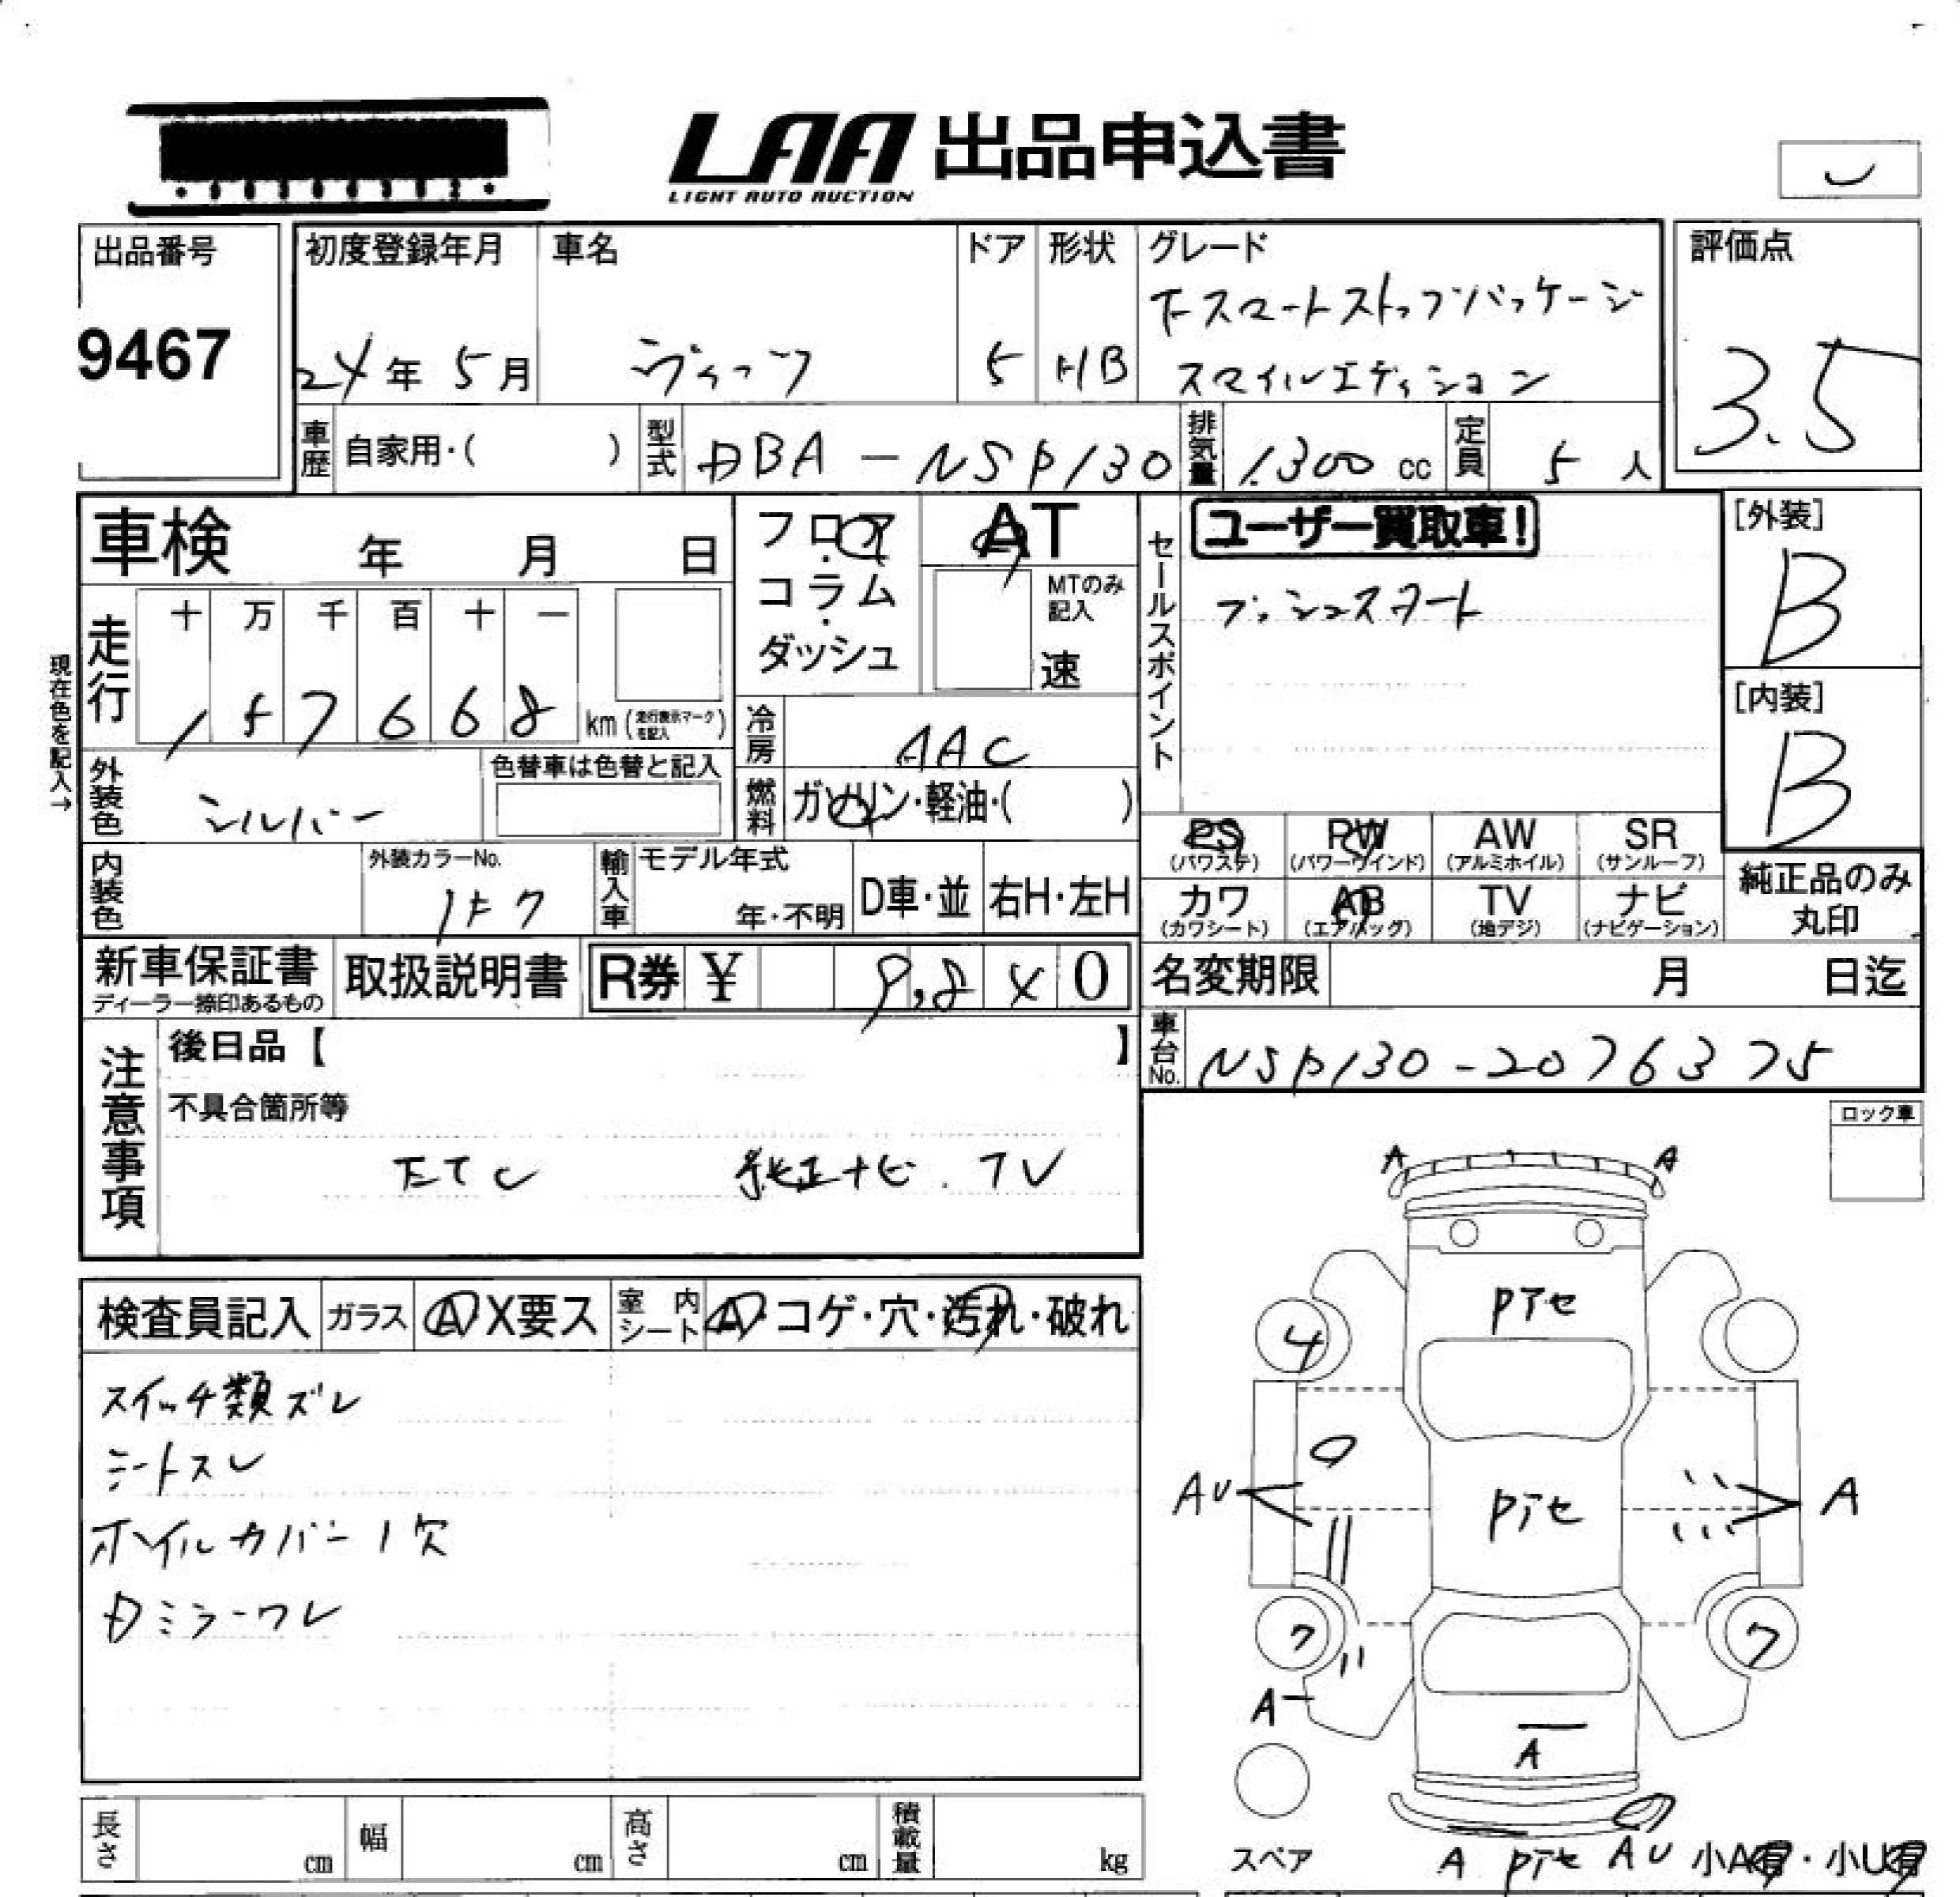 LAA 出品申込書
LIGHT AUTO AUCTION
出品番号
9467
初度登録年月
24年 5月
車名
ヴィッツ
ドア
5
形状
HB
グレード
F スマートストップパッケージ
スマイルエディション
評価点
3.5
車歴 自家用・( )
型式 DBA-NSP130
排気量 1.300 cc
定員 5 人
車検 年 月 日
フロア・コラム・ダッシュ
AT
MTのみ記入
速
セールスポイント
ユーザー買取車!
プッシュスタート
[外装]
B
[内装]
B
現在色を記入→
走行
十 万 千 百 十 一
1 5 7 6 6 8 km (走行表示マークを記入)
冷房 AAC
外装色 シルバー
色替車は色替と記入
燃料 ガソリン・軽油・( )
PS (パワステ)
PW (パワーウインド)
AW (アルミホイル)
SR (サンルーフ)
カワ (カワシート)
AB (エアバッグ)
TV (地デジ)
ナビ (ナビゲーション)
純正品のみ
丸印
内装色
外装カラーNo.
1F7
輸入車
モデル年式
年・不明
D車・並
右H・左H
新車保証書
ディーラー捺印あるもの
取扱説明書
R券 ¥ 9,8 x 0
名変期限 月 日迄
車台No. NSP130-2076375
注意事項
後日品【 】
不具合箇所等
ETC 純正ナビ.TV
ロック車
検査員記入
ガラス A X要ス
室内シート A・コゲ・穴・汚れ・破れ
スイッチ類ズレ
シートスレ
ホイルカバー1欠
Dミラーワレ
A A
Pアセ
4
AU Pアセ A
7 7
A
A
スペア
A Pアセ AU 小A有・小U有
長さ cm
幅 cm
高さ cm
積載量 kg